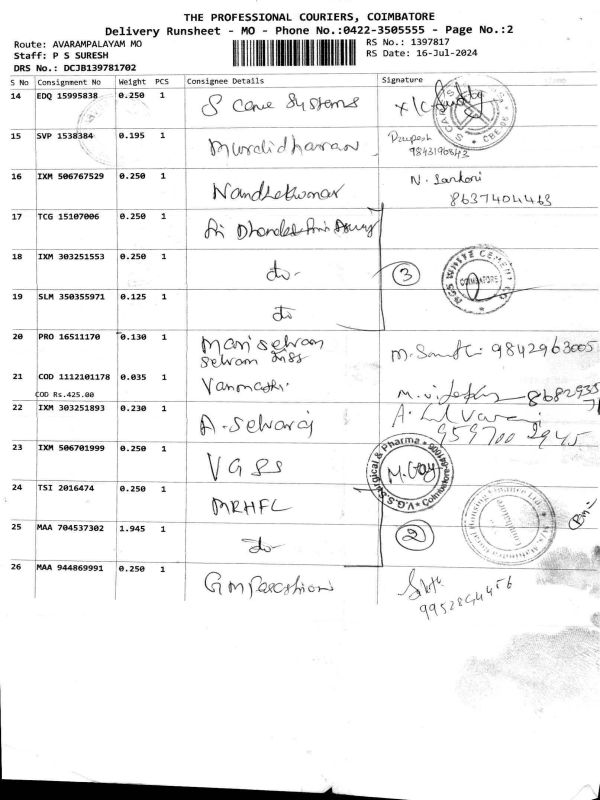 THE PROFESSIONAL COURIERS, COIMBATORE
Delivery Runsheet - MO - Phone No.:0422-3505555 - Page No.:2
Route: AVARAMPALAYAM MO
RS No.: 1397817
Staff: P S SURESH
RS Date: 16-Jul-2024
DRS No.: DCJB139781702
S No Consignment No Weight PCS Consignee Details Signature
14 EDQ 15995838 0.250 1 S Cane Systems
15 SVP 1538384 0.195 1 Muralidharan
9843190842
16 IXM 506767529 0.250 1 Nandhakumar N.
8637404463
17 TCG 15107006 0.250 1
18 IXM 303251553 0.250 1 do 3
WHITE CEMENT
COIMBATORE
19 SLM 350355971 0.125 1 do
20 PRO 16511170 0.130 1 Mariselvam
selvam
9842963005
21 COD 1112101178 0.035 1 Vanmathi.
COD Rs.425.00
22 IXM 303251893 0.230 1 A. Selvaraj
23 IXM 506701999 0.250 1 VGSS
V.G.S. Surgical & Pharma
24 TSI 2016474 0.250 1 MRHFL
25 MAA 704537302 1.945 1 do 2
26 MAA 944869991 0.250 1